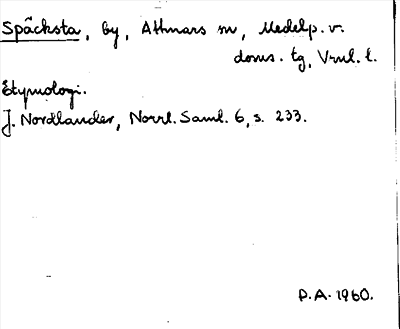 Späcksta, by, Attmars sn, Medelp. v.
doms. tg, Vnl. l.
Etymologi.
J. Nordlander, Norrl. Saml. 6, s. 233.
P.A. 1960.